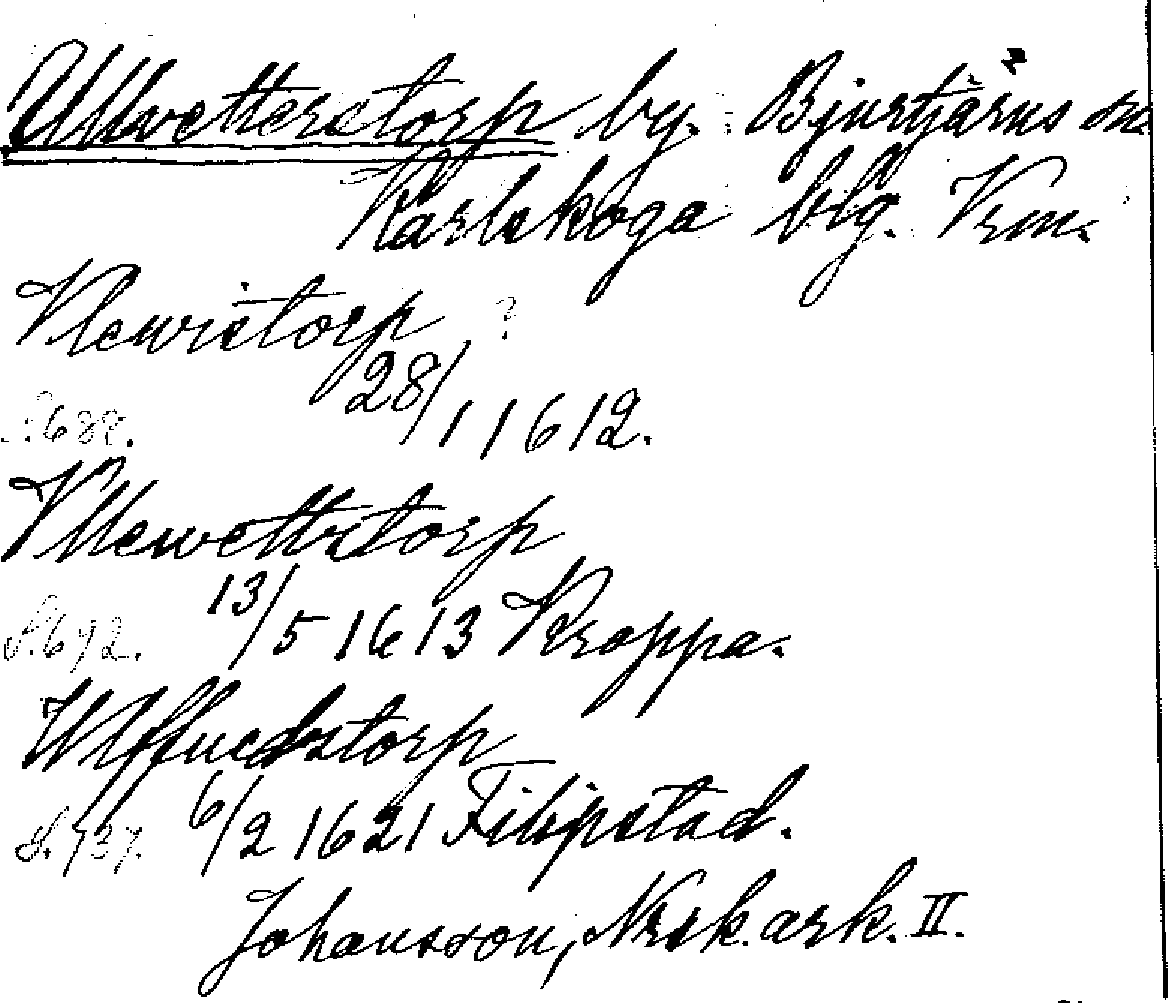 Ullvetterstorp by. Bjurtjärns sn.
Karlskoga blg. Vrm.
Vlewistorp ?
S. 688. 28/1 1612.
Vllewettstorp
S. 692. 13/5 1613 Kroppa.
Wlffuedstorp
S. 737. 6/2 1621 Filipstad.
Johansson, Nrsk. ark. II.